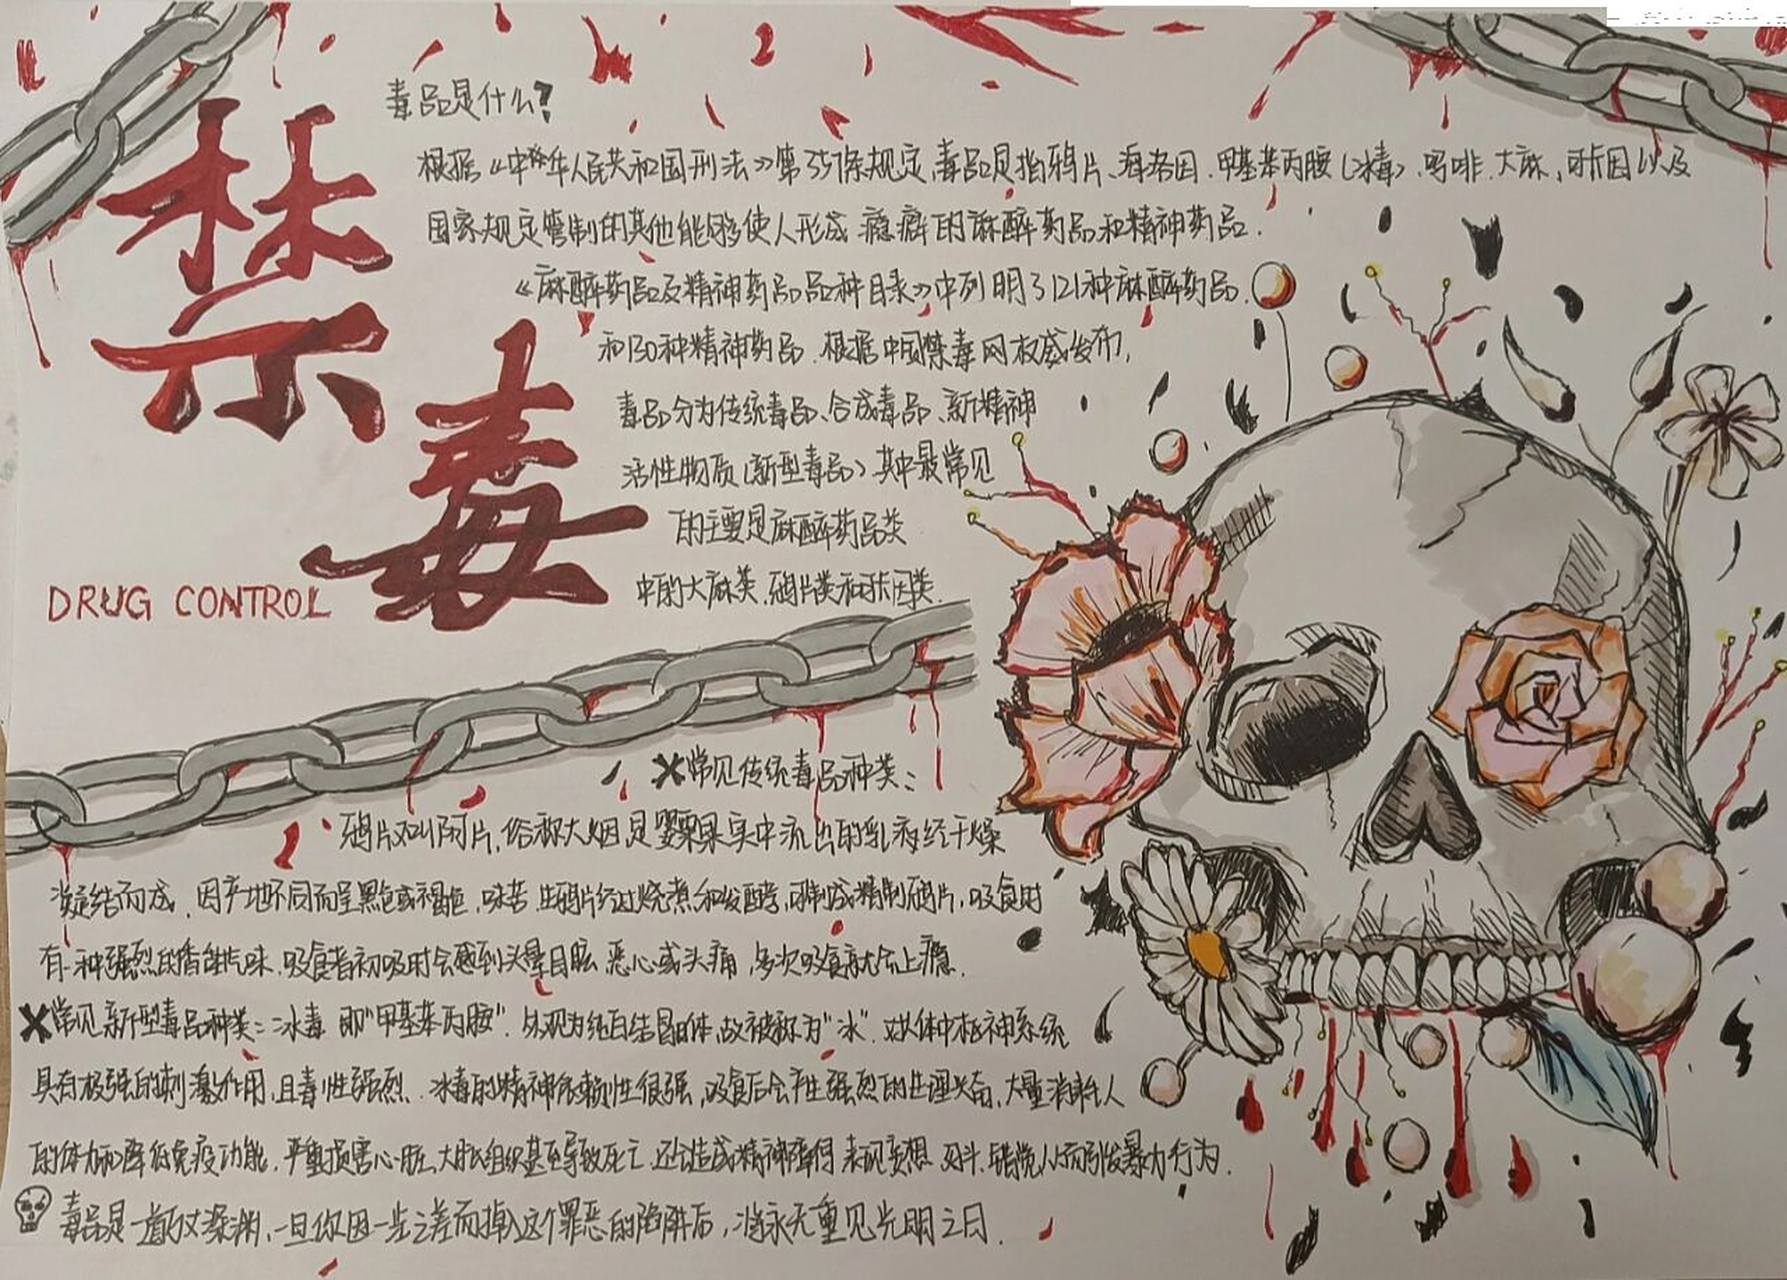 禁毒
DRUG CONTROL
毒品是什么?
根据《中华人民共和国刑法》第357条规定,毒品是指鸦片、海洛因、甲基苯丙胺(冰毒)、吗啡、大麻、可卡因以及
国家规定管制的其他能够使人形成瘾癖的麻醉药品和精神药品.
《麻醉药品及精神药品品种目录》中列明了121种麻醉药品
和130种精神药品.根据中国禁毒网权威发布,
毒品分为传统毒品、合成毒品、新精神
活性物质(新型毒品).其中最常见
的主要是麻醉药品类
中的大麻类.鸦片类和可卡因类.
常见传统毒品种类:
鸦片又叫阿片,俗称大烟是罂粟果实中流出的乳液经干燥
凝结而成.因产地不同而呈黑色或褐色,味苦.生鸦片经过烧煮和发酵,可制成精制鸦片,吸食时
有一种强烈的香甜气味.吸食者初吸时会感到头晕目眩恶心或头痛,多次吸食就会上瘾.
常见新型毒品种类:冰毒 即"甲基苯丙胺".外观为纯白结晶体,故被称为"冰".对人体中枢神系统
具有极强的刺激作用,且毒性强烈.冰毒的精神依赖性很强,吸食后会产生强烈的生理兴奋,大量消耗人
的体力和降低免疫功能.严重损害心脏、大脑组织甚至导致死亡.还会造成精神障碍 表现妄想 好斗、错觉从而引发暴力行为.
毒品是一道万丈深渊,一旦你因一步之差而掉入这个罪恶的陷阱后,将永无重见光明之日.